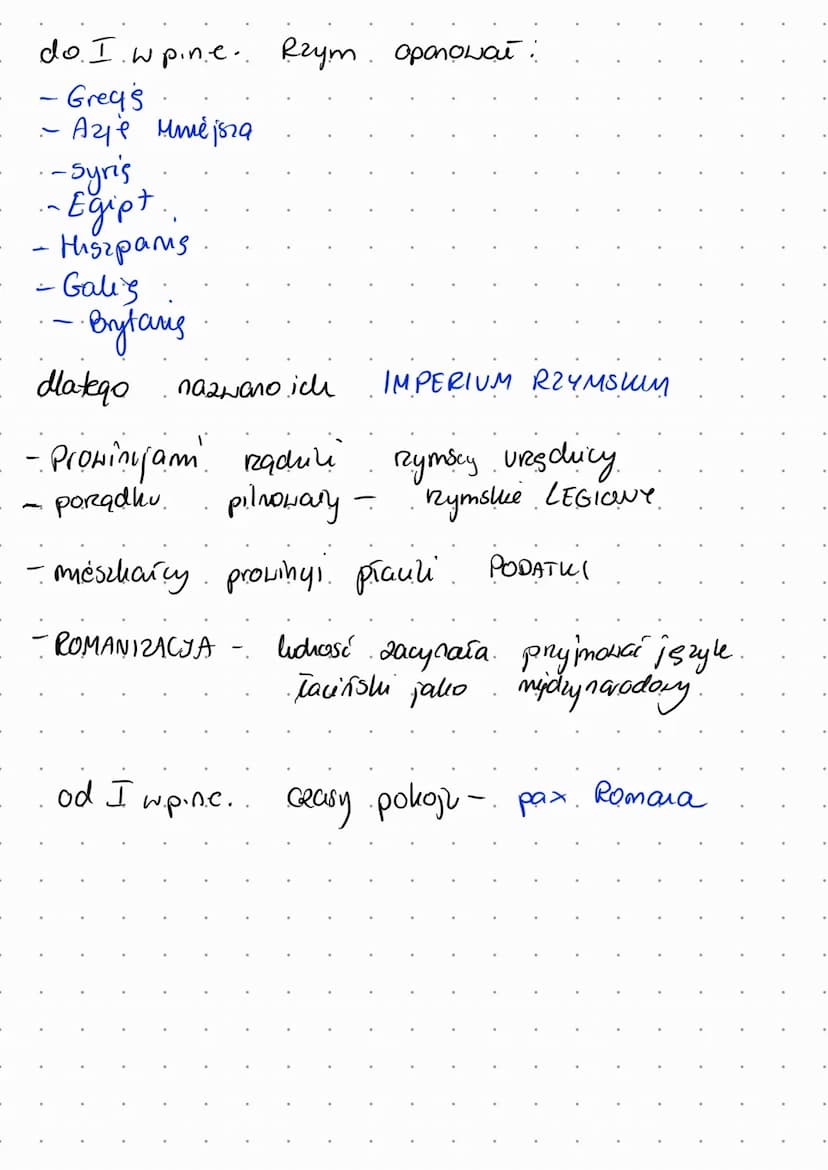 do I w p.n.e. Rzym opanował:
- Grecję
- Azję Mniejszą
- Syrię
- Egipt
- Hiszpanię
- Galię
- Brytanię
dlatego nazwano ich IMPERIUM RZYMSKIM
- Prowincjami rządzili rzymscy urzędnicy
- porządku pilnowały - rzymskie LEGIONY
- mieszkańcy prowincji płacili PODATKI
- ROMANIZACJA - ludność zaczynała przyjmować język
łaciński jako międzynarodowy
od I w p.n.e. czasy pokoju - pax Romana